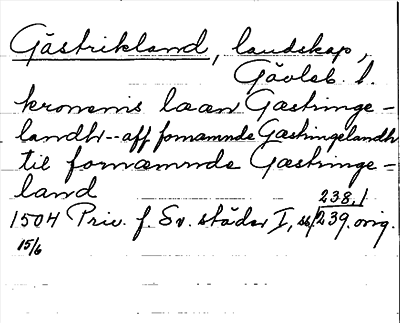 Gästrikland, landskap,
Gävleb. l.
kronenis laan Gæstringe-
landh--aff fornæmnde Gæstringelandh
til fornæmnde Gæstringe=
land
238,1
1504 Priv. f. Sv. städer I, ss/239. orig.
15/6